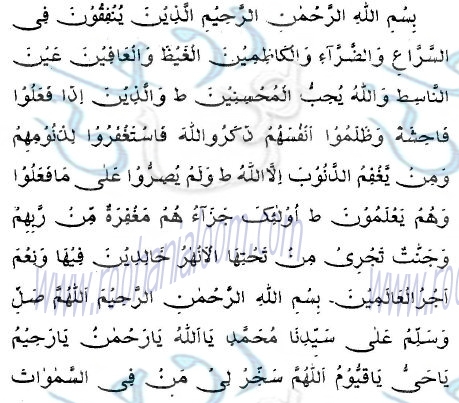 بِسْمِ اللهِ الرَّحْمٰنِ الرَّحِيْمِ الَّذِيْنَ يُنْفِقُوْنَ فِى
السَّرَّاءِ وَالضَّرَّآءِ وَالْكَاظِمِيْنَ الْغَيْظَ وَالْعَافِيْنَ عَيْنَ
النَّاسِط وَاللهُ يُحِبُّ الْمُحْسِنِيْنَ ط وَالَّذِيْنَ اِذَا فَعَلُوْا
فَاحِشَةً وَظَلَمُوْا اَنْفُسَهُمْ ذَكَرُو اللهَ فَاسْتَغْفَرُوْا لِذُنُوْمِهِمْ
وَمِنْ يَّغْفِمُ الذُّنُوْبَ اِلَّا اللهُ ط وَلَمْ يُصِرُّوْا عَلٰى مَافَعَلُوْا
وَهُمْ يَعْلَمُوْنَ ط اُولٰئِكَ جَزَآءُ هُمْ مَغْفِرَةٌ مِّنْ رَبِّهِمْ
وَجَنّٰتٌ تَجْرِىْ مِنْ تَحْتِهَا الْاَنْهٰرُ خَالِدِيْنَ فِيْهَا وَنِعْمَ
اَجْرُ الْعَالَمِيْنَ۔ بِسْمِ اللهِ الرَّحْمٰنِ الرَّحِيْمَ اَللّٰهُمَّ صَلِّ
وَسَلِّمْ عَلٰى سَيِّدِنَا مُحَمَّدٍ يَااَللهُ يَارَحْمٰنُ يَارَحِيْمُ
يَاحَىُّ يَاقَيُّوْمُ اَللّٰهُمَّ سَخِّرْ لِىْ مَنْ فِى السَّمٰوٰاتْ